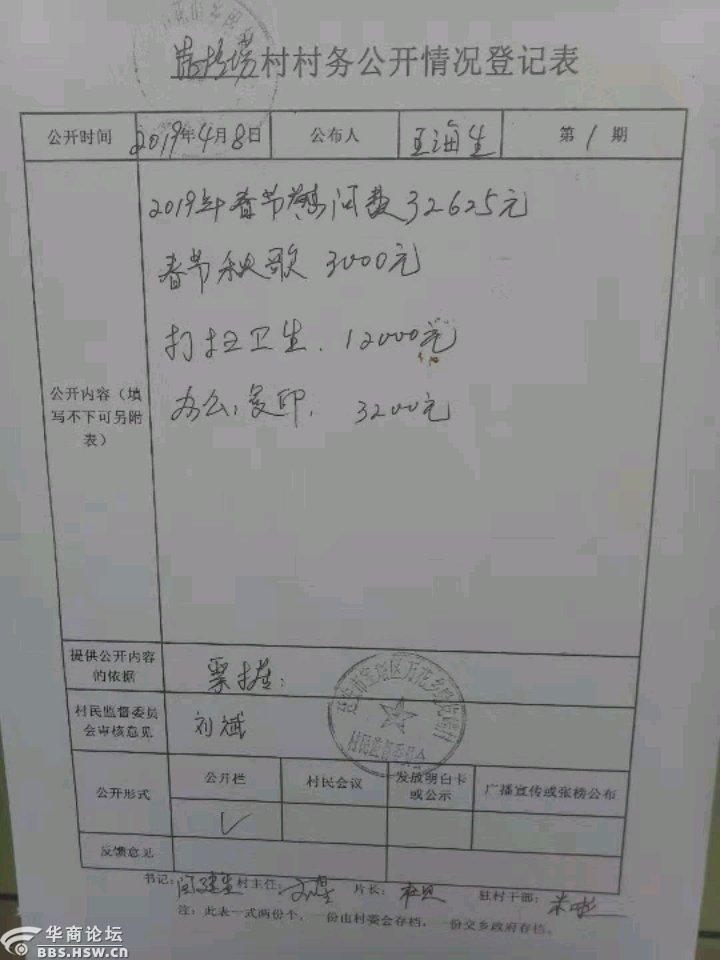 村村务公开情况登记表
公开时间 2019年4月8日 公布人 王海生 第1期
公开内容（填
写不下可另附
表）
2019年春节慰问费32625元
春节秧歌 3000元
打扫卫生. 12000元
办公,复印. 3200元
提供公开内容
的依据
票据:
村民监督委员
会审核意见
刘斌
村民监督委员会
公开形式
公开栏 村民会议 发放明白卡
或公示 广播宣传或张榜公布
✓
反馈意见
书记: 村主任: 片长: 驻村干部:
注：此表一式两份个，一份由村委会存档，一份交乡政府存档。
华商论坛
BBS.HSW.CN